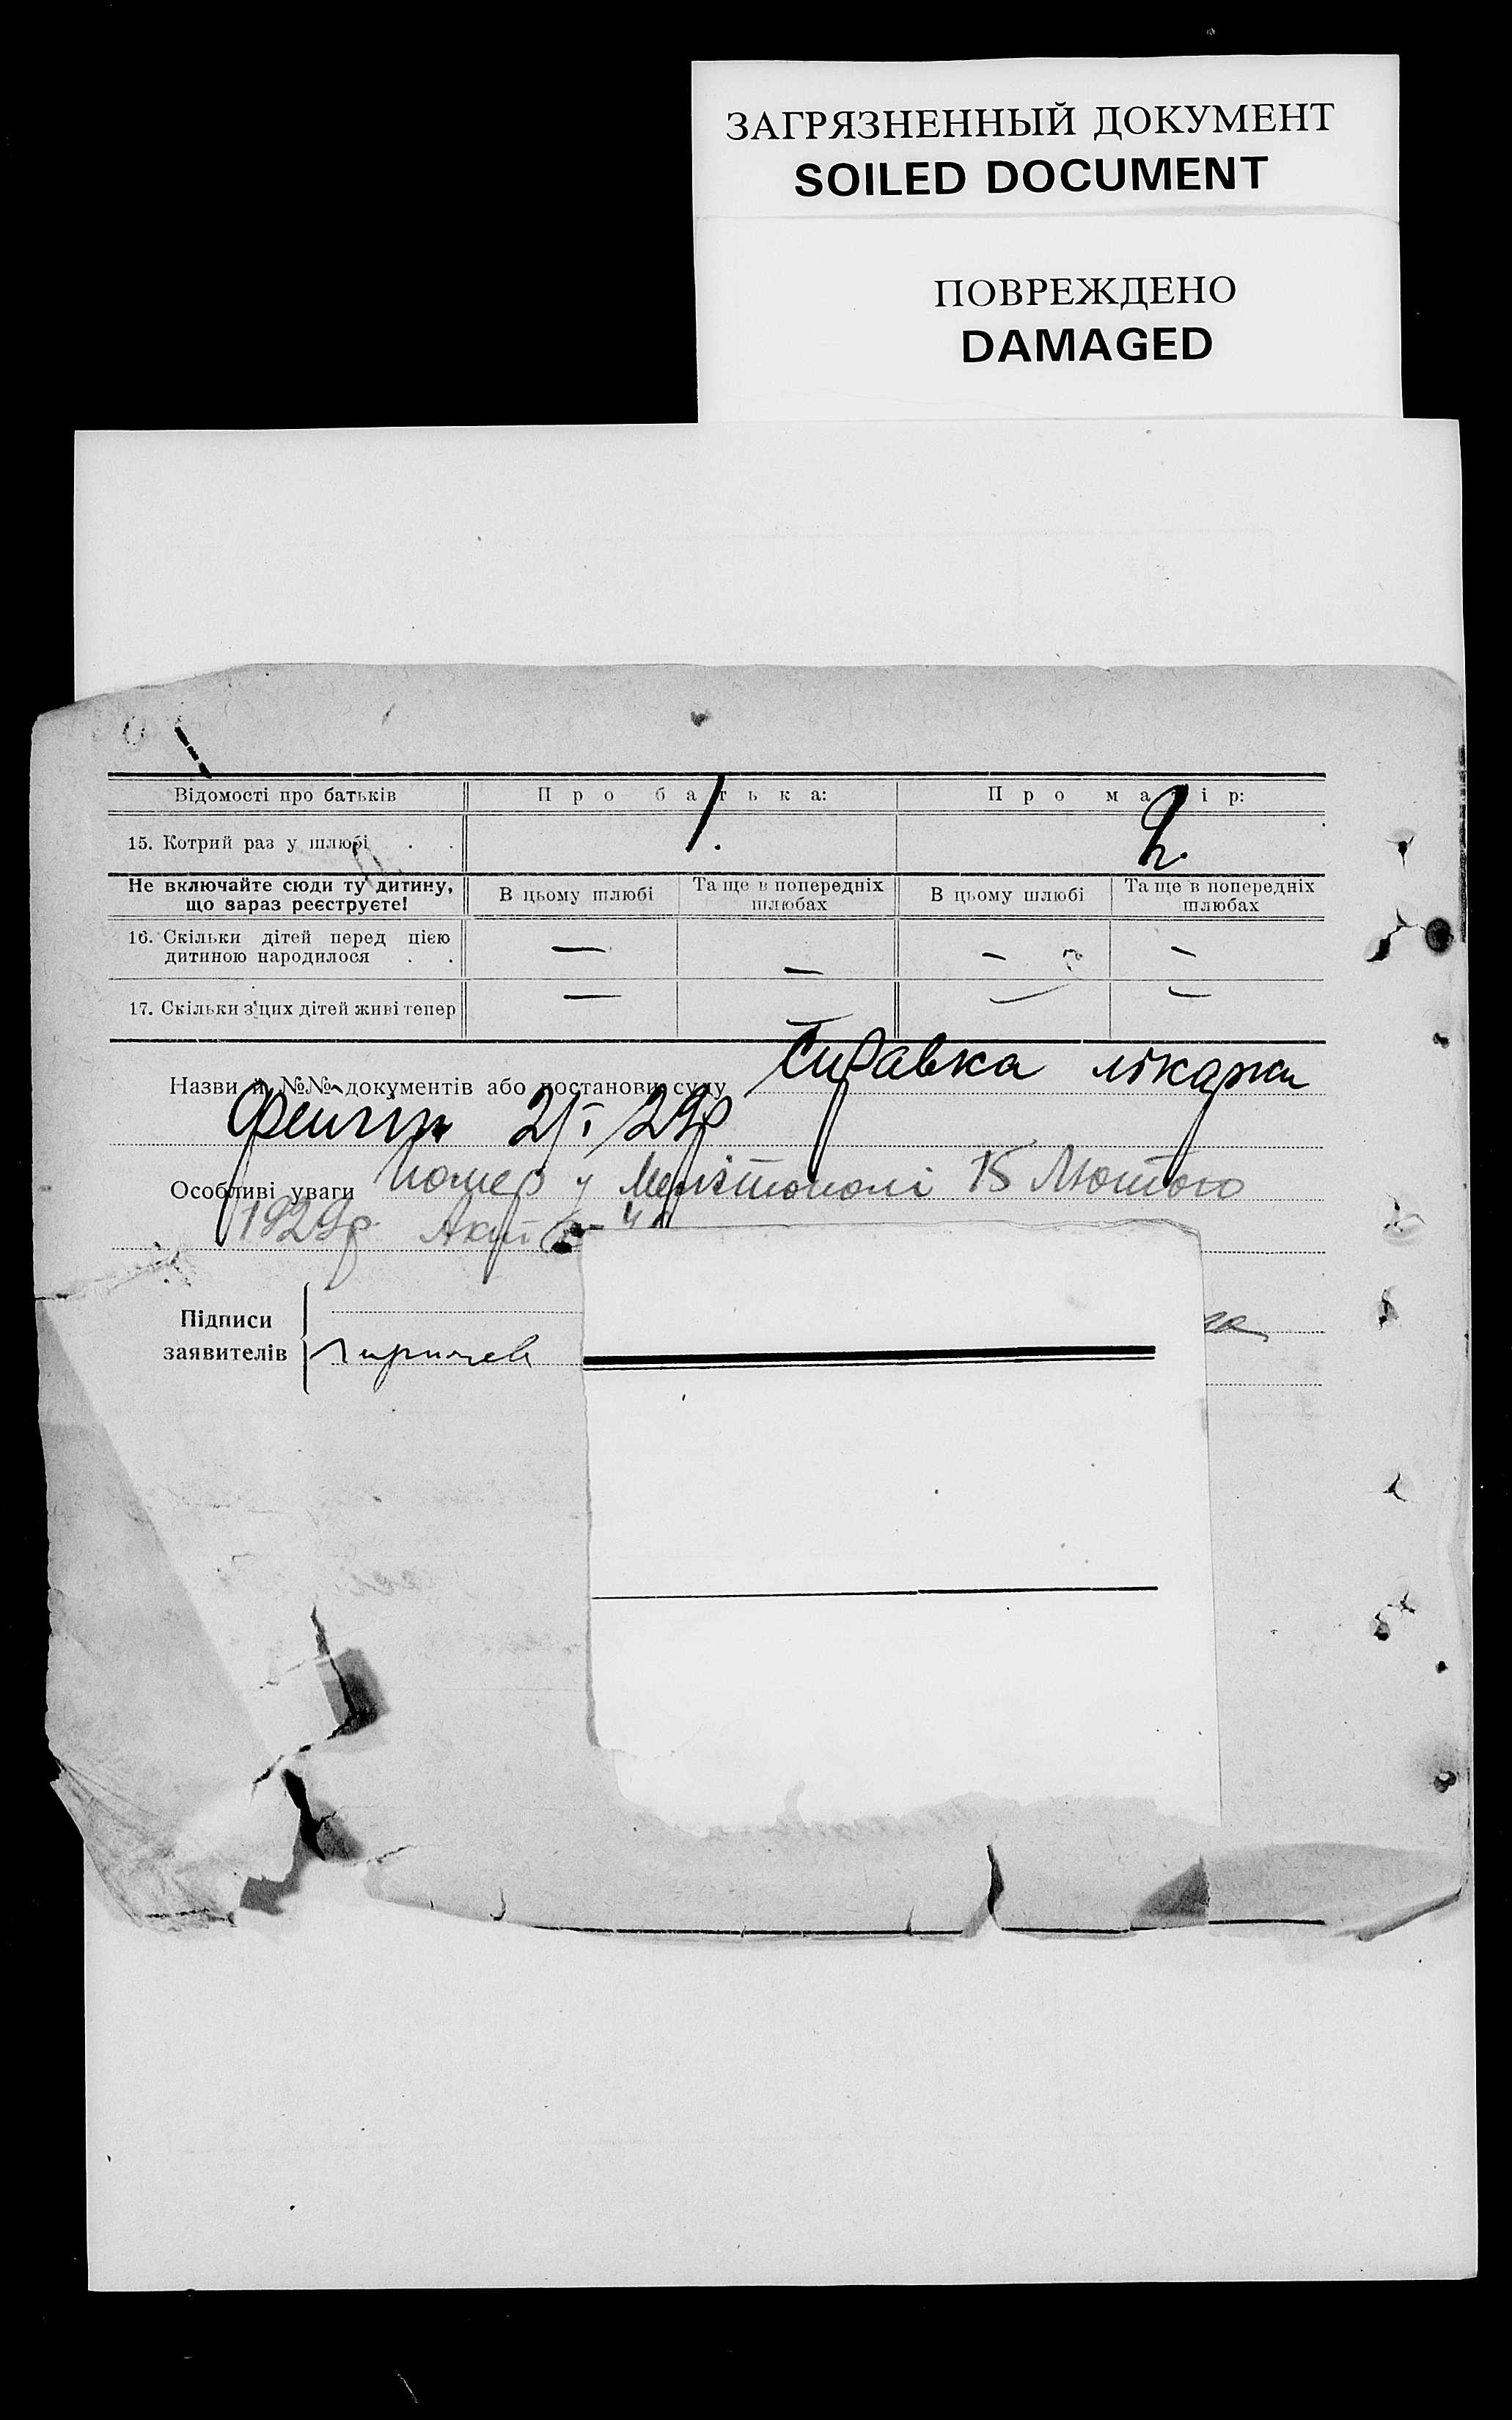 ЗАГРЯЗНЕННЫЙ ДОКУМЕНТ
SOILED DOCUMENT
ПОВРЕЖДЕНО
DAMAGED
Відомості про батьків Про батька: Про матір:
15. Котрий раз у шлюбі . . 1. 2.
Не включайте сюди ту дитину, що зараз реєструєте! В цьому шлюбі Та ще в попередніх шлюбах В цьому шлюбі Та ще в попередніх шлюбах
16. Скільки дітей перед цією дитиною народилося . . — — - -
17. Скільки з цих дітей живі тепер — — -
Назви й №№ документів або постанови суду Справка лікаря
2/I/29р
Особливі уваги Помер у Мелітополі 15 Лютого
1929р. Акт
Підписи
заявителів